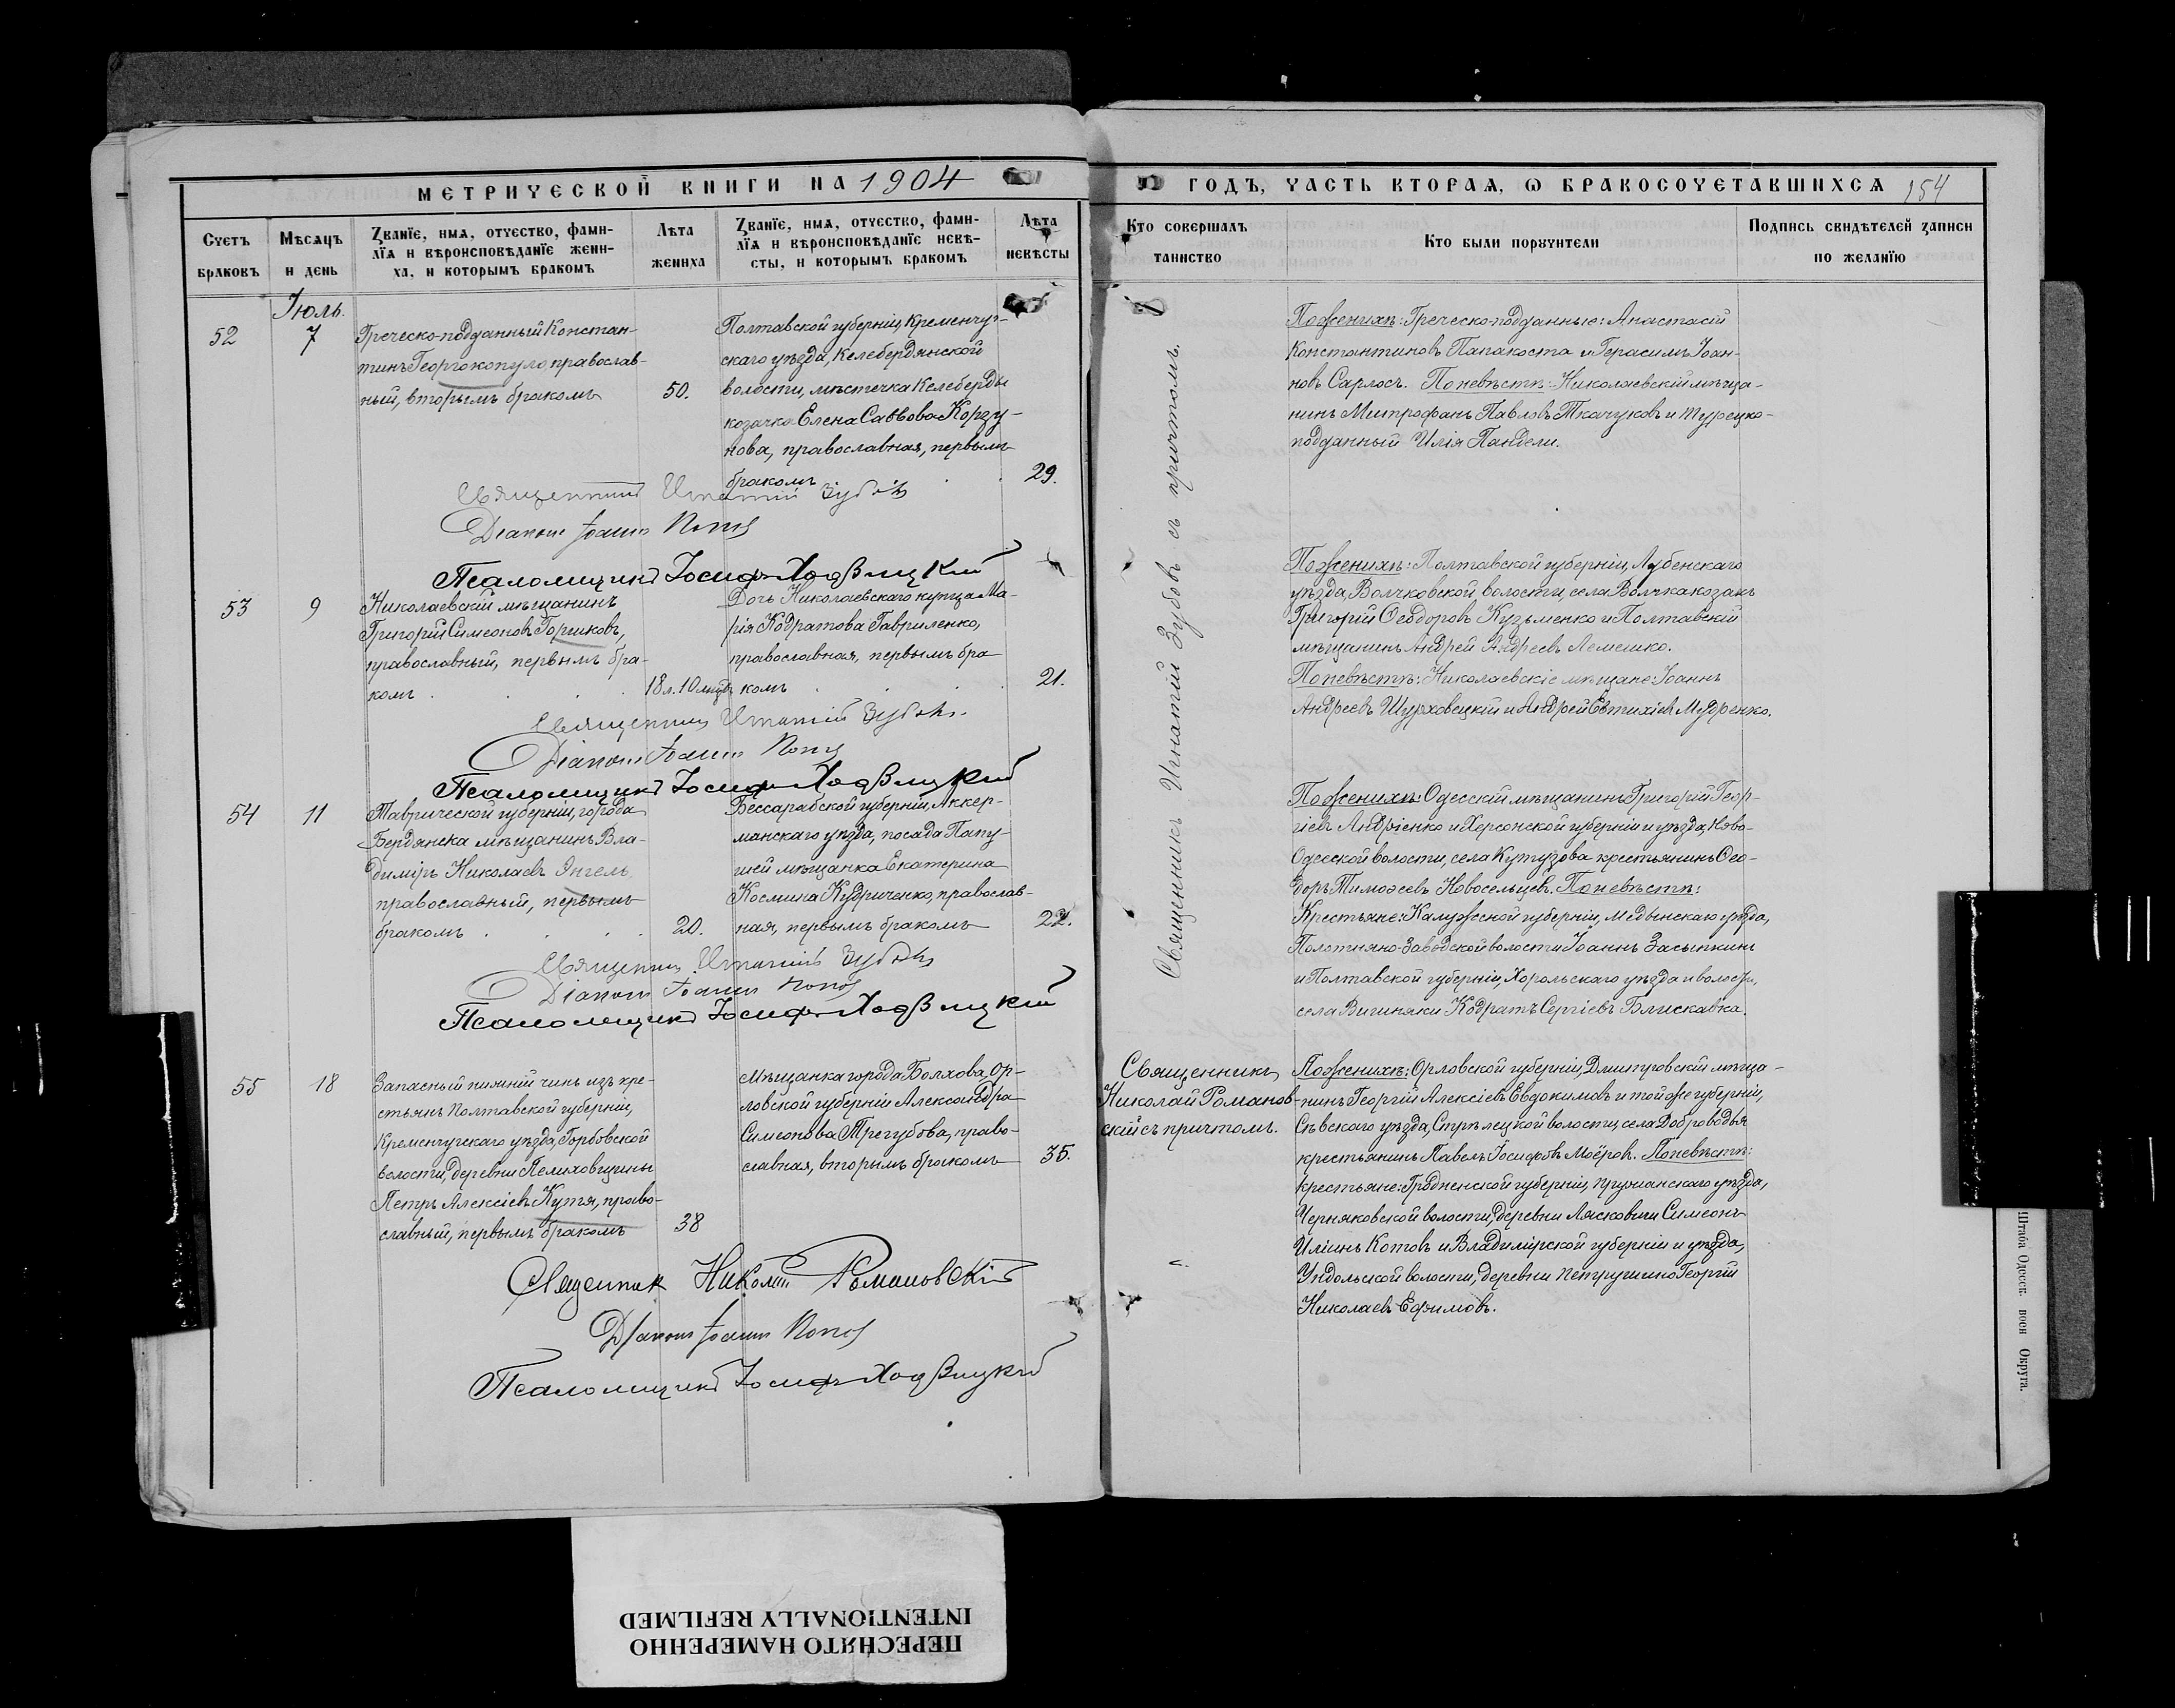 МЕТРИЧЕСКОЙ КНИГИ НА 1904
Счетъ браковъ
Мѣсяцъ и день
Званїе, имя, отчество, фамилїя и вѣроисповѣданїе жениха, и которымъ бракомъ
Лѣта жениха
Званїе, имя, отчество, фамилїя и вѣроисповѣданїе невѣсты, и которымъ бракомъ
Лѣта невѣсты
Іюль.
52
7
Греческо-подданный Констан-
тинъ Георгокопуло, православ-
ный, вторымъ бракомъ
50.
Полтавской губерніи, Кременчуг-
скаго уѣзда, Келебердянской
волости, мѣстечка Келеберды
козачка Елена Саввова Корзу-
нова, православная, первымъ
бракомъ
29.
Священникъ Игнатій Зубовъ
Діаконъ Іоаннъ
Псаломщикъ Іосифъ Ходвицкій
53
9
Николаевскій мѣщанинъ
Григорій Симеоновъ Горшковъ,
православный, первымъ бра-
комъ
18 л. 10 мцвъ
Дочь Николаевскаго купца Ма-
рія Кодратова Гавриленко,
православная, первымъ бра
комъ
21.
Священникъ Игнатій Зубовъ
Діаконъ Іоаннъ
Псаломщикъ Іосифъ Ходвицкій
54
11
Таврической губерніи, города
Бердянска мѣщанинъ Вла-
диміръ Николаевъ Энгель,
православный, первымъ
бракомъ
20.
Бессарабской губерніи, Аккер-
манскаго уѣзда, посада Папу
шей мѣщанка Екатерина
Космина Кудриченко, православ-
ная, первымъ бракомъ
22.
Священникъ Игнатій Зубовъ
Діаконъ Іоаннъ
Псаломщикъ Іосифъ Ходвицкій
55
18
Запасный нижній чинъ изъ кре-
стьянъ Полтавской губерніи,
Кременчугскаго уѣзда, Горбовской
волости, деревни Пелиховщины
Петръ Алексіевъ Кутя, право-
славный, первымъ бракомъ
38
Мѣщанка города Болхова, Ор-
ловской губерніи Александра
Симеонова Трегубова, право-
славная, вторымъ бракомъ
35.
Священник Николай Романовскій
Діаконъ Іоаннъ
Псаломщикъ Іосифъ Ходвицкій
ГОДЪ, ЧАСТЬ ВТОРАЯ, Ѡ БРАКОСОЧЕТАВШИХСЯ
154
Кто совершалъ таинство
Кто были поручители
Подпись свидѣтелей записи по желанїю
Священникъ Игнатій Зубовъ съ причтомъ.
По женихѣ: Греческо-подданные: Анастасій
Константиновъ Папакоста и Герасимъ Іоан-
новъ Сарлосъ. По невѣстѣ: Николаевскій мѣща-
нинъ Митрофанъ Павловъ Ткачуковъ и Турецко-
подданный Илія Пандели.
По женихѣ: Полтавской губерніи, Лубенскаго
уѣзда, Волчковской волости, села Волчка козакъ
Григорій Ѳеодоровъ Кузьменко и Полтавскій
мѣщанинъ Андрей Андреевъ Лемешко.
По невѣстѣ: Николаевскіе мѣщане: Іоаннъ
Андреевъ Шурховецкій и Андрей Евтихіевъ Мудренко.
По женихѣ: Одесскій мѣщанинъ Григорій Геор-
гіевъ Андріенко и Херсонской губерніи и уѣзда, Ново-
Одесской волости, села Кутузова крестьянинъ Ѳео-
доръ Тимоѳеевъ Новосельцевъ. По невѣстѣ:
Крестьяне: Калужской губерніи, Медынскаго уѣзда,
Полотняно-Заводской волости Іоаннъ Засыпкинъ
и Полтавской губерніи, Хорольскаго уѣзда и волости,
села Вишняки Кодратъ Сергіевъ Блискавка.
Священникъ
Николай Романов-
скій съ причтомъ.
По женихѣ: Орловской губерніи, Дмитровскій мѣща-
нинъ Георгій Алексіевъ Евдокимовъ и той же губерніи,
Сѣвскаго уѣзда, Стрѣлецкой волости, села Доброводья
крестьянинъ Павелъ Іосифовъ Моёровъ. По невѣстѣ:
крестьяне: Гродненской губерніи, Пружанскаго уѣзда,
Черняковской волости, деревни Лясковичи Симеонъ
Иліинъ Котовъ и Владимірской губерніи и уѣзда,
Ундольской волости, деревни Петрушино Георгій
Николаевъ Ефимовъ.
Штаба Одесск. воен Округа.
ПЕРЕСНЯТО НАМЕРЕННО
INTENTIONALLY REFILMED